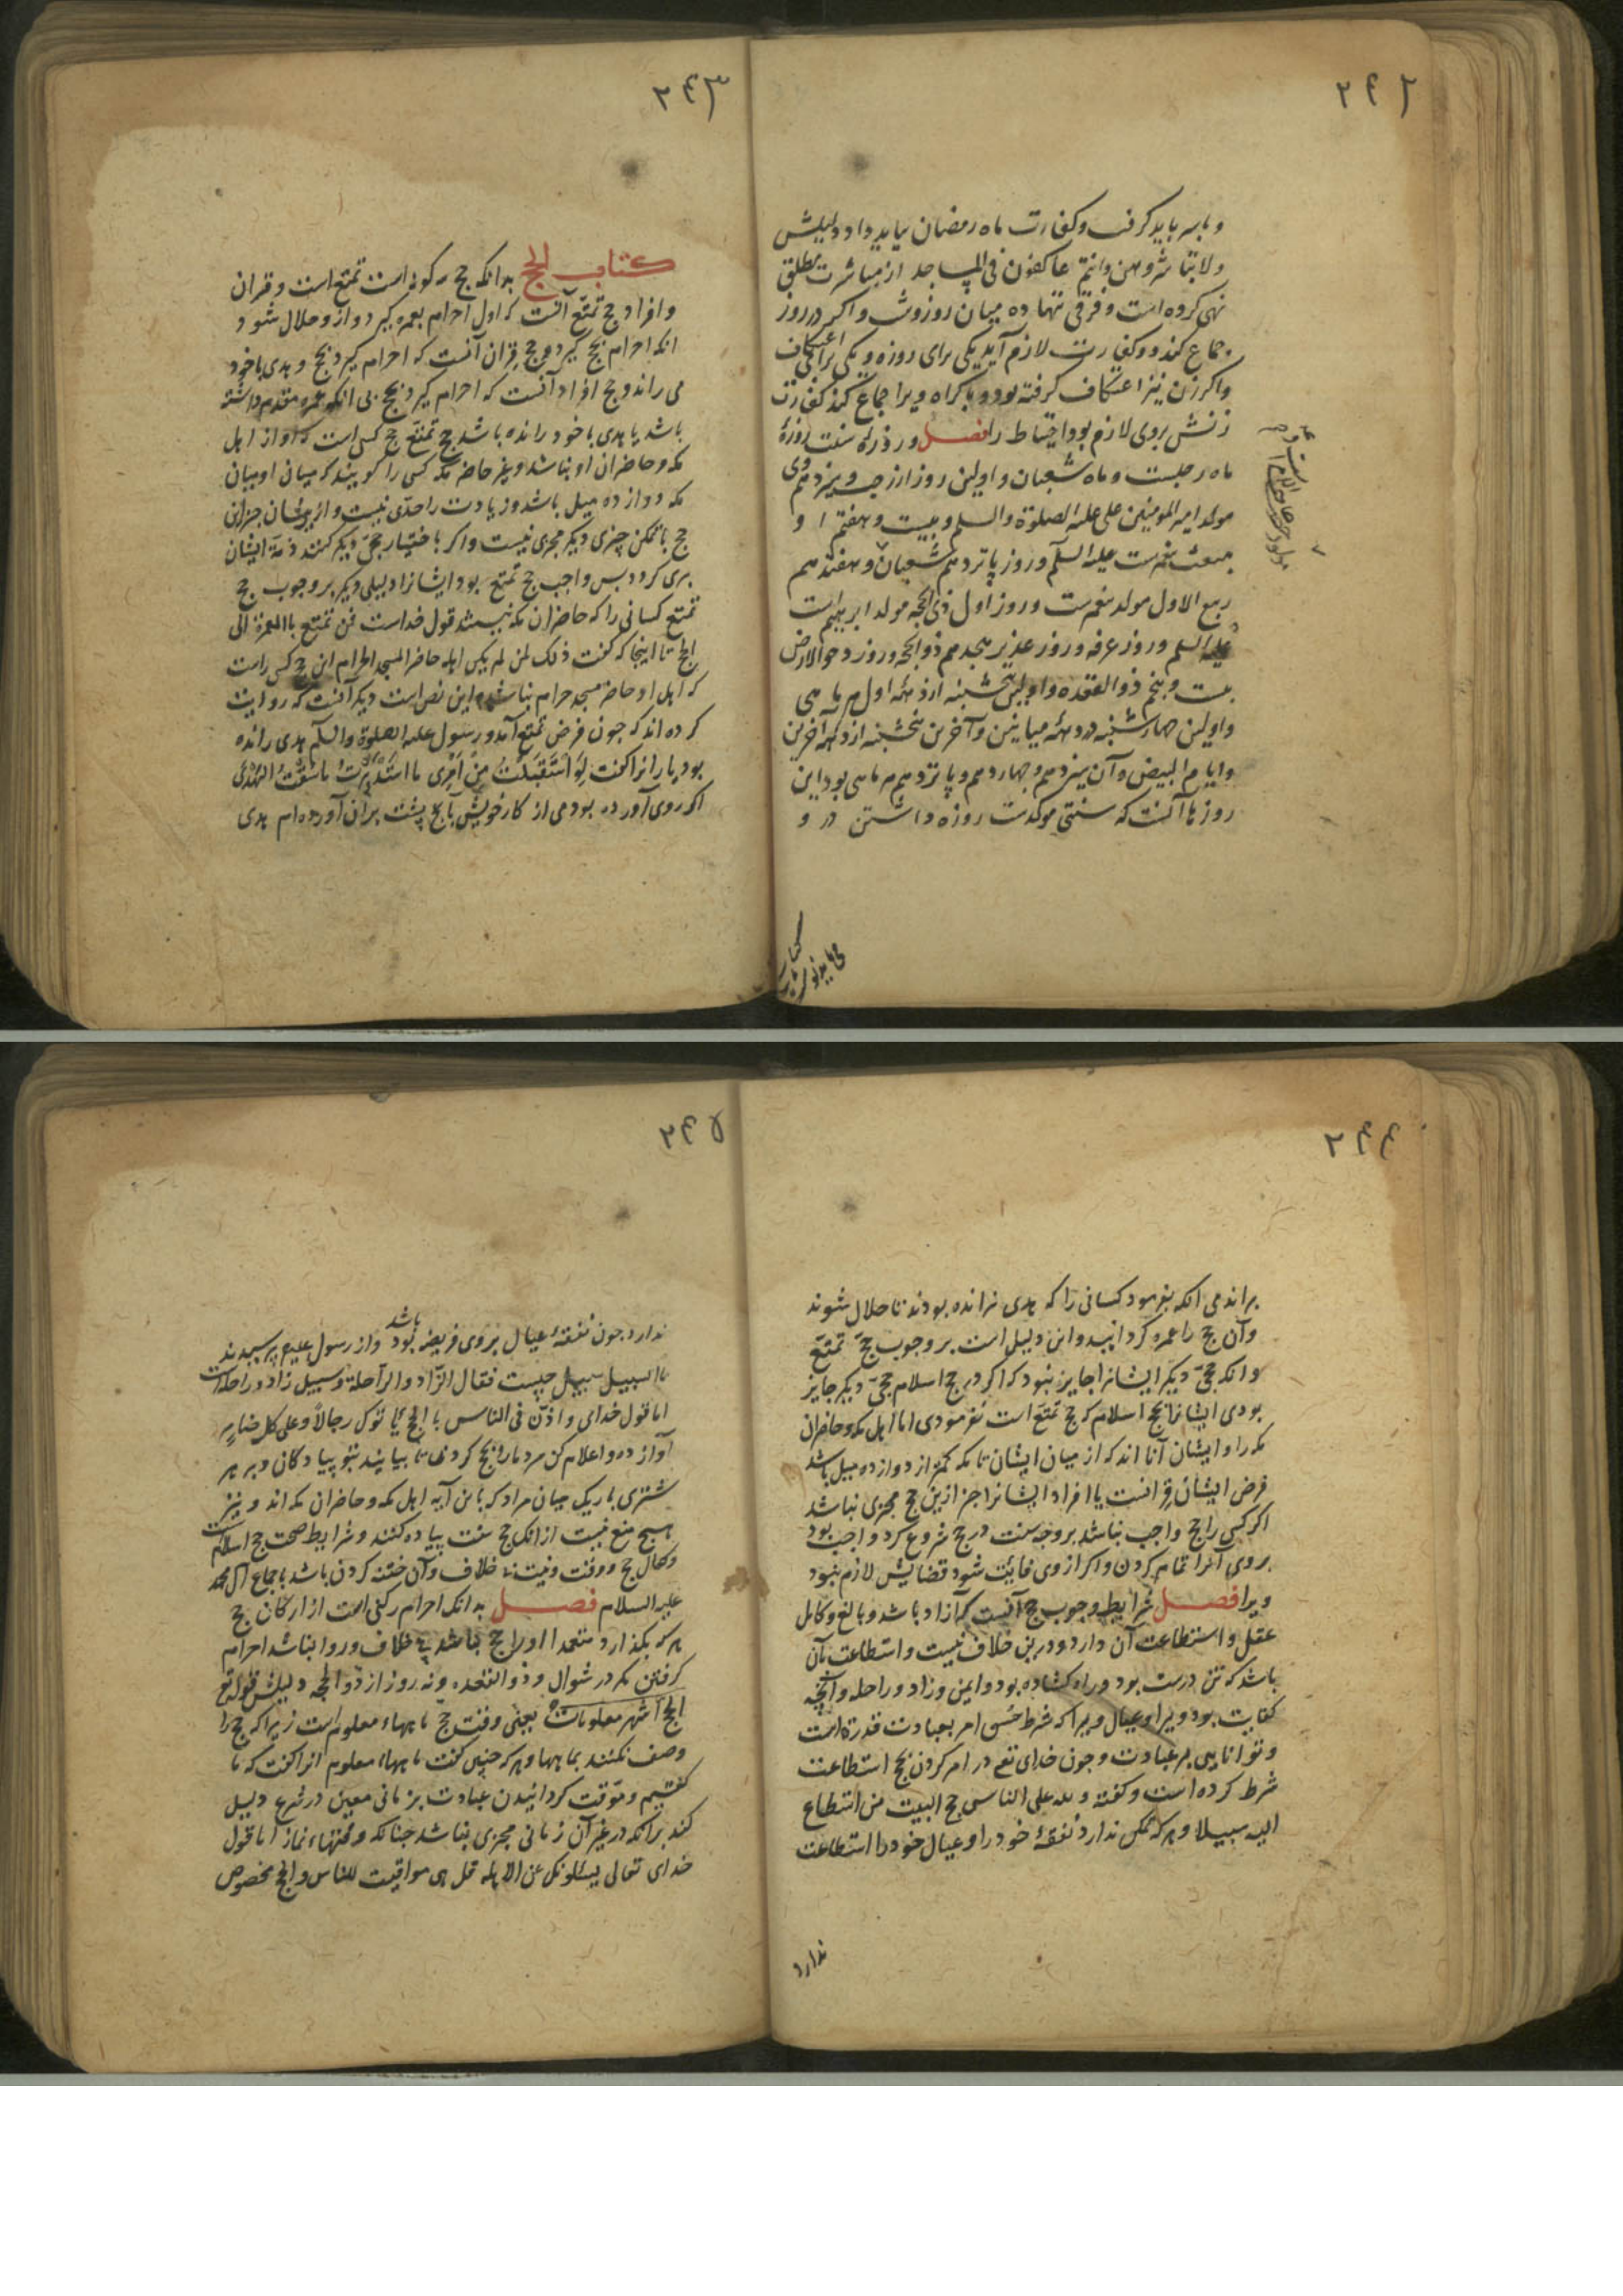 ۲۴۲
و باسر باید گرفت و کفارت ماه رمضان بباید داد دلیلش
ولا تباشروهن وانتم عاکفون فی المساجد از مباشرت مطلق
نهی کرده است و فرقی ننهاده میان روز و شب و اکر در روز
جماع کند دو کفارت لازم آید یکی برای روزه و یکی برای اعتکاف
و اکر زن نیز اعتکاف گرفته بود و باکراه ویرا جماع کند کفارت
زنش بروی لازم بود احتیاط را فصل و روزهٔ سنت روزهٔ
ماه رجبست و ماه شعبان و اولین روز از رجب و سیزدهم وی
مولد امیر المومنین علی علیه الصلوة والسلم و بیست و هفتم او
مبعث پیغمبرست علیه السلم و روز پانزدهم شعبان و هفتدهم
ربیع الاول مولد پیغمبرست و روز اول ذی الحجه مولد ابرهیم است
علیه السلم و روز عرفه و روز غدیر هجدهم ذوالحجه و روز دحو الارض
بیست و پنجم ذوالقعده و اولین پنجشنبه از دههٔ اول هر ماهی
و اولین چهارشنبه در دههٔ میانین و آخرین پنجشنبه از دههٔ آخرین
و ایام البیض و آن سیزدهم و چهاردهم و پانزدهم هر ماهی بود این
روزها آنست که سنتی موکدست روزه داشتن در و
۲۴۳
کتاب الحج بدانکه حج سه کونه است تمتع است و قران
و افراد حج تمتع آنست که اول احرام بعمره گیرد و از و حلال شود
انکه احرام بحج گیرد و حج قران آنست که احرام گیرد بحج و هدی با خود
می راند و حج افراد آنست که احرام گیرد بحج بی انکه عمره مقدم داشته
باشد یا هدی با خود رانده باشد حج تمتع حج کسی است که او از اهل
مکه و حاضران او نباشد و غیر حاضر مکه کسی را کویند که میان او میان
مکه دوازده میل باشد و زیادت را حدی نیست و از ایشان جز این
حج با تمکن چیزی دیکر مجزی نیست و اکر باختیار حجی دیکر کنند ذمهٔ ایشان
بری کردد بس واجب حج تمتع بود ایشانرا دلیلی دیکر بر وجوب حج
تمتع کسانی را که حاضران مکه نیستند قول خداست فمن تمتع بالعمرة الی
الحج تا اینجا که کفت ذلک لمن لم یکن اهله حاضر المسجد الحرام این حج کسی راست
که اهل او حاضر مسجد حرام نباشد و این نص است دیکر آنست که روایت
کرده اند که چون فرض تمتع آمد و رسول علیه الصلوة والسلم هدی رانده
بود یارانرا کفت لو استقبلت من امری ما استدبرت ما سقت الهدی
اکر روی آورده بودمی از کار خویش بآنچ پشت بران آورده ام هدی
۲۴۴
براندمی انکه بفرمود کسانی را که هدی نرانده بودند تا حلال شوند
وآن حج را عمره کردانید و این دلیل است بر وجوب حج تمتع
و انکه حجی دیکر ایشانرا جایز نبود که اکر در حج اسلام حجی دیکر جایز
بودی ایشانرا بحج اسلام که حج تمتع است نفرمودی اما اهل مکه و حاضران
مکه را و ایشان آنانند که از میان ایشان تا مکه کمتر از دوازده میل باشد
فرض ایشان قرانست یا افراد ایشانرا جز ازین حج مجزی نباشد
اکر کسی را حج واجب نباشد بر وجه سنت در حج شروع کرد واجب بود
بروی آنرا تمام کردن و اکر از وی فایت شود قضایش لازم نبود
ویرا فصل شرایط وجوب حج آنست که آزاد باشد و بالغ و کامل
عقل و استطاعت آن دارد و درین خلاف نیست و استطاعت بآن
باشد که تن درست بود و راه کشاده بود و ایمن و زاد و راحله و آنچه
کفایت بود ویرا و عیال ویرا که شرط حسن امر بعبادت قدرة است
و توانایی بر عبادت و چون خدای تع در امر کردن بحج استطاعت
شرط کرده است و کفته و لله علی الناس حج البیت من استطاع
الیه سبیلا و هر که تمکن ندارد نفقهٔ خود را و عیال خود را استطاعت
ندارد
۲۴۵
ندارد چون نفقهٔ عیال بروی فریضه بود باشد و از رسول علیم پرسیدند
ما السبیل سبیل چیست فقال الزاد والراحلة وسبیل زاد و راحله است
اما قول خدای و اذن فی الناس بالحج یاتوک رجالاً وعلی کل ضامر
آواز ده و اعلام کن مردمانرا بحج کردن تا بیایند بتو پیادکان و بر هر
شتری باریک میان مراد که باین آیه اهل مکه و حاضران مکه اند و نیز
هیچ منع نیست از انک حج سنت پیاده کنند و شرایط صحت حج اسلام است
و کمال حج و وقت و نیت بی خلاف و آن ختنه کردن باشد باجماع آل محمد
علیه السلام فصل بدانک احرام رکنی است از ارکان حج
هر که بگذارد متعمدا او را حج نباشد بی خلاف و روا نباشد احرام
کرفتن مکر در شوال و ذوالقعده و نه روز از ذوالحجه دلیلش قوله تع
الحج اشهر معلومات یعنی وقت حج ماههاء معلوم است زیرا که حج را
وصف نکنند بماهها و هر که چنین کفت ماههاء معلوم انرا کفت که ما
کفتیم و موقت کردانیدن عبادت بزمانی معین در شرع دلیل
کند برانکه در غیر آن زمانی مجزی نباشد چنانکه وقتهاء نماز اما قول
خدای تعالی یسئلونک عن الاهله قل هی مواقیت للناس والحج مخصوص